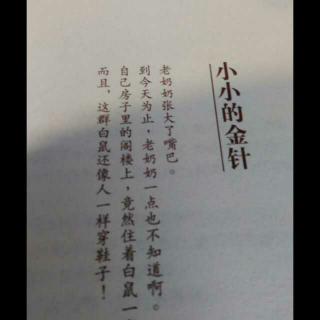 小小的金针
老奶奶张大了嘴巴。
到今天为止，老奶奶一点也不知道啊。
自己房子里的阁楼上，竟然住着白鼠一
而且，这群白鼠还像人一样穿鞋子！